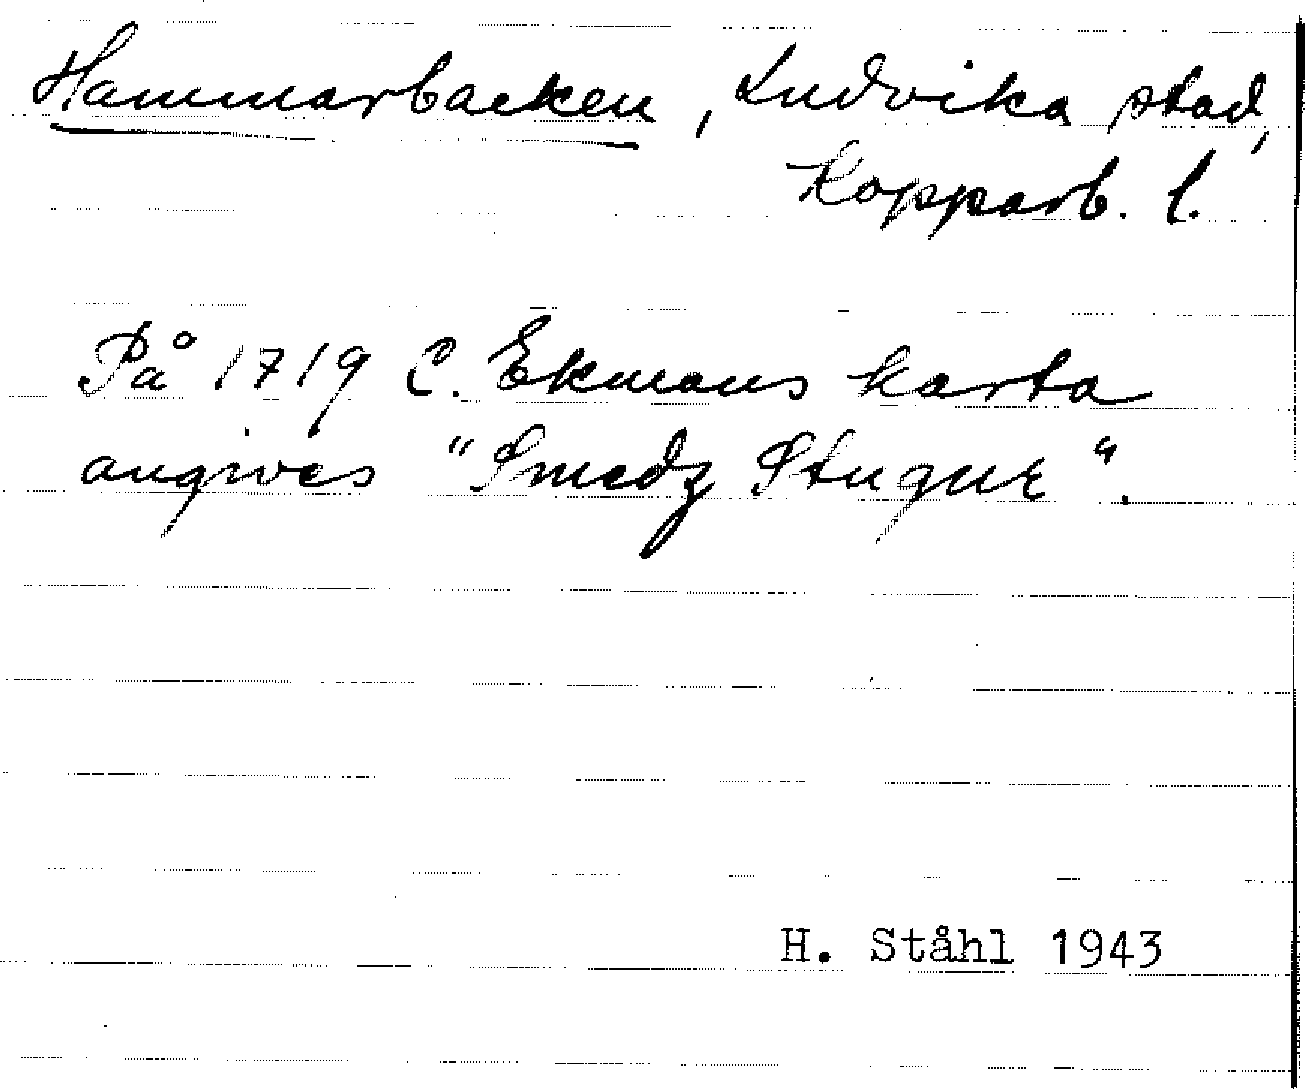 Hammarbacken, Ludvika stad,
Kopparb. l.
På 1719 C. Ekmans karta
angives "Smedz Stugur".
H. Ståhl 1943